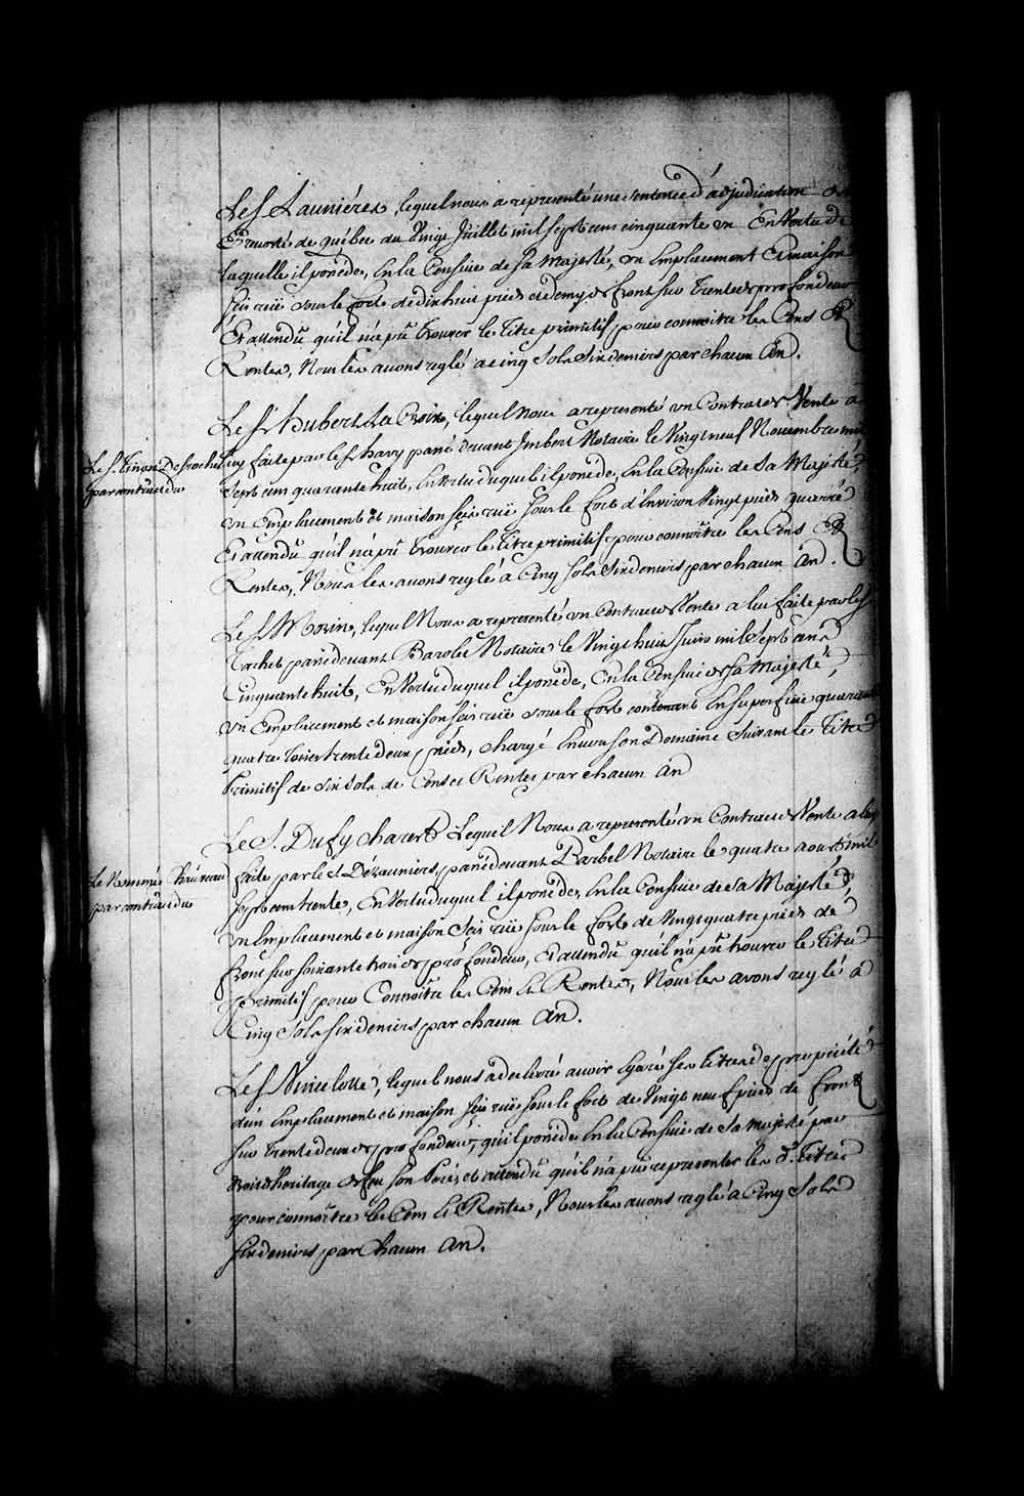 Le S.r Launiéres, lequel nous a representé une Sentence d'adjudication
Prevosté de Québec du Vingt Juillet mil sept cens cinquante un En Vertu de
laquelle il possede, En la Censive de Sa Majesté, un Emplacement Et maison
Scis rüe Sous le fort de dix huit pieds et demy de front sur Trente de profondeur
Et attendû qu'il n'a pû trouver le Titre primitif pour connoitre les Cens Et
Rentes, Nous les avons reglé a cinq Sols Six deniers par chacun An.
Le S.r Hubert La Croix, lequel nous a representé un Contrat de Vente a
Le S. Tinon Desroches
par contrat du
luy faite par le S.r havy passé devant Imbert Notaire le Vingt neuf Novembre mil
Sept cens quarante huit, En Vertu duquel il possede, En la Censive de Sa Majesté,
un Emplacement et maison Scis rüe Sous le fort d'Environ Vingt pieds quarré
Et attendû qu'il n'a pû trouver le Titre primitif pour connoître les Cens Et
Rentes, Nous les avons reglé a Cinq Sols Six deniers par chacun An.
Le S.r Morin, lequel Nous a representé un Contract de Vente a lui faite par le S.r
Tachet passé devant Barolet Notaire le Vingt huit Juin mil Sept cens
Cinquante huit, En Vertu duquel il possede, En la Censive de Sa Majesté,
un Emplacement et maison Scis rüe Sous le fort contenant En Superficie quarante
quatre toises trente deux pieds, chargé Envers Son Domaine Suivant le Titre
Primitif de Six Sols de Cens et Rentes par chacun An
Le S. Dufy Charest Lequel Nous a representé un Contract de Vente a luy
Le Nommé
par contrat du
faite par le S.r Dézauniers, passé devant Barbel Notaire le quatre aoust mil
Sept cens trente, En Vertu duquel il possede, En la Censive de Sa Majesté,
un Emplacement et maison Scis rüe Sous le fort de Vingt quatre pieds de
front sur soixante trois de profondeur, Et attendû qu'il n'a pû trouver le Titre
primitif pour Connoître les Cens Et Rentes, Nous les avons reglé a
Cinq Sols Six deniers par chacun An.
Le S.r Nivelotte, lequel nous a declaré avoir Egaré Ses Titres de propriété
d'un Emplacement et maison Scis rüe Sous le fort de Vingt neuf pieds de front
sur trente deux de profondeur, qu'il possede En la Censive de Sa Majesté par
droit d'heritage de feu Son Pere, et attendû qu'il n'a pû representer les d. Titres
pour connoître les Cens Et Rentes, Nous les avons reglé a Cinq Sols
Six deniers par Chacun An.